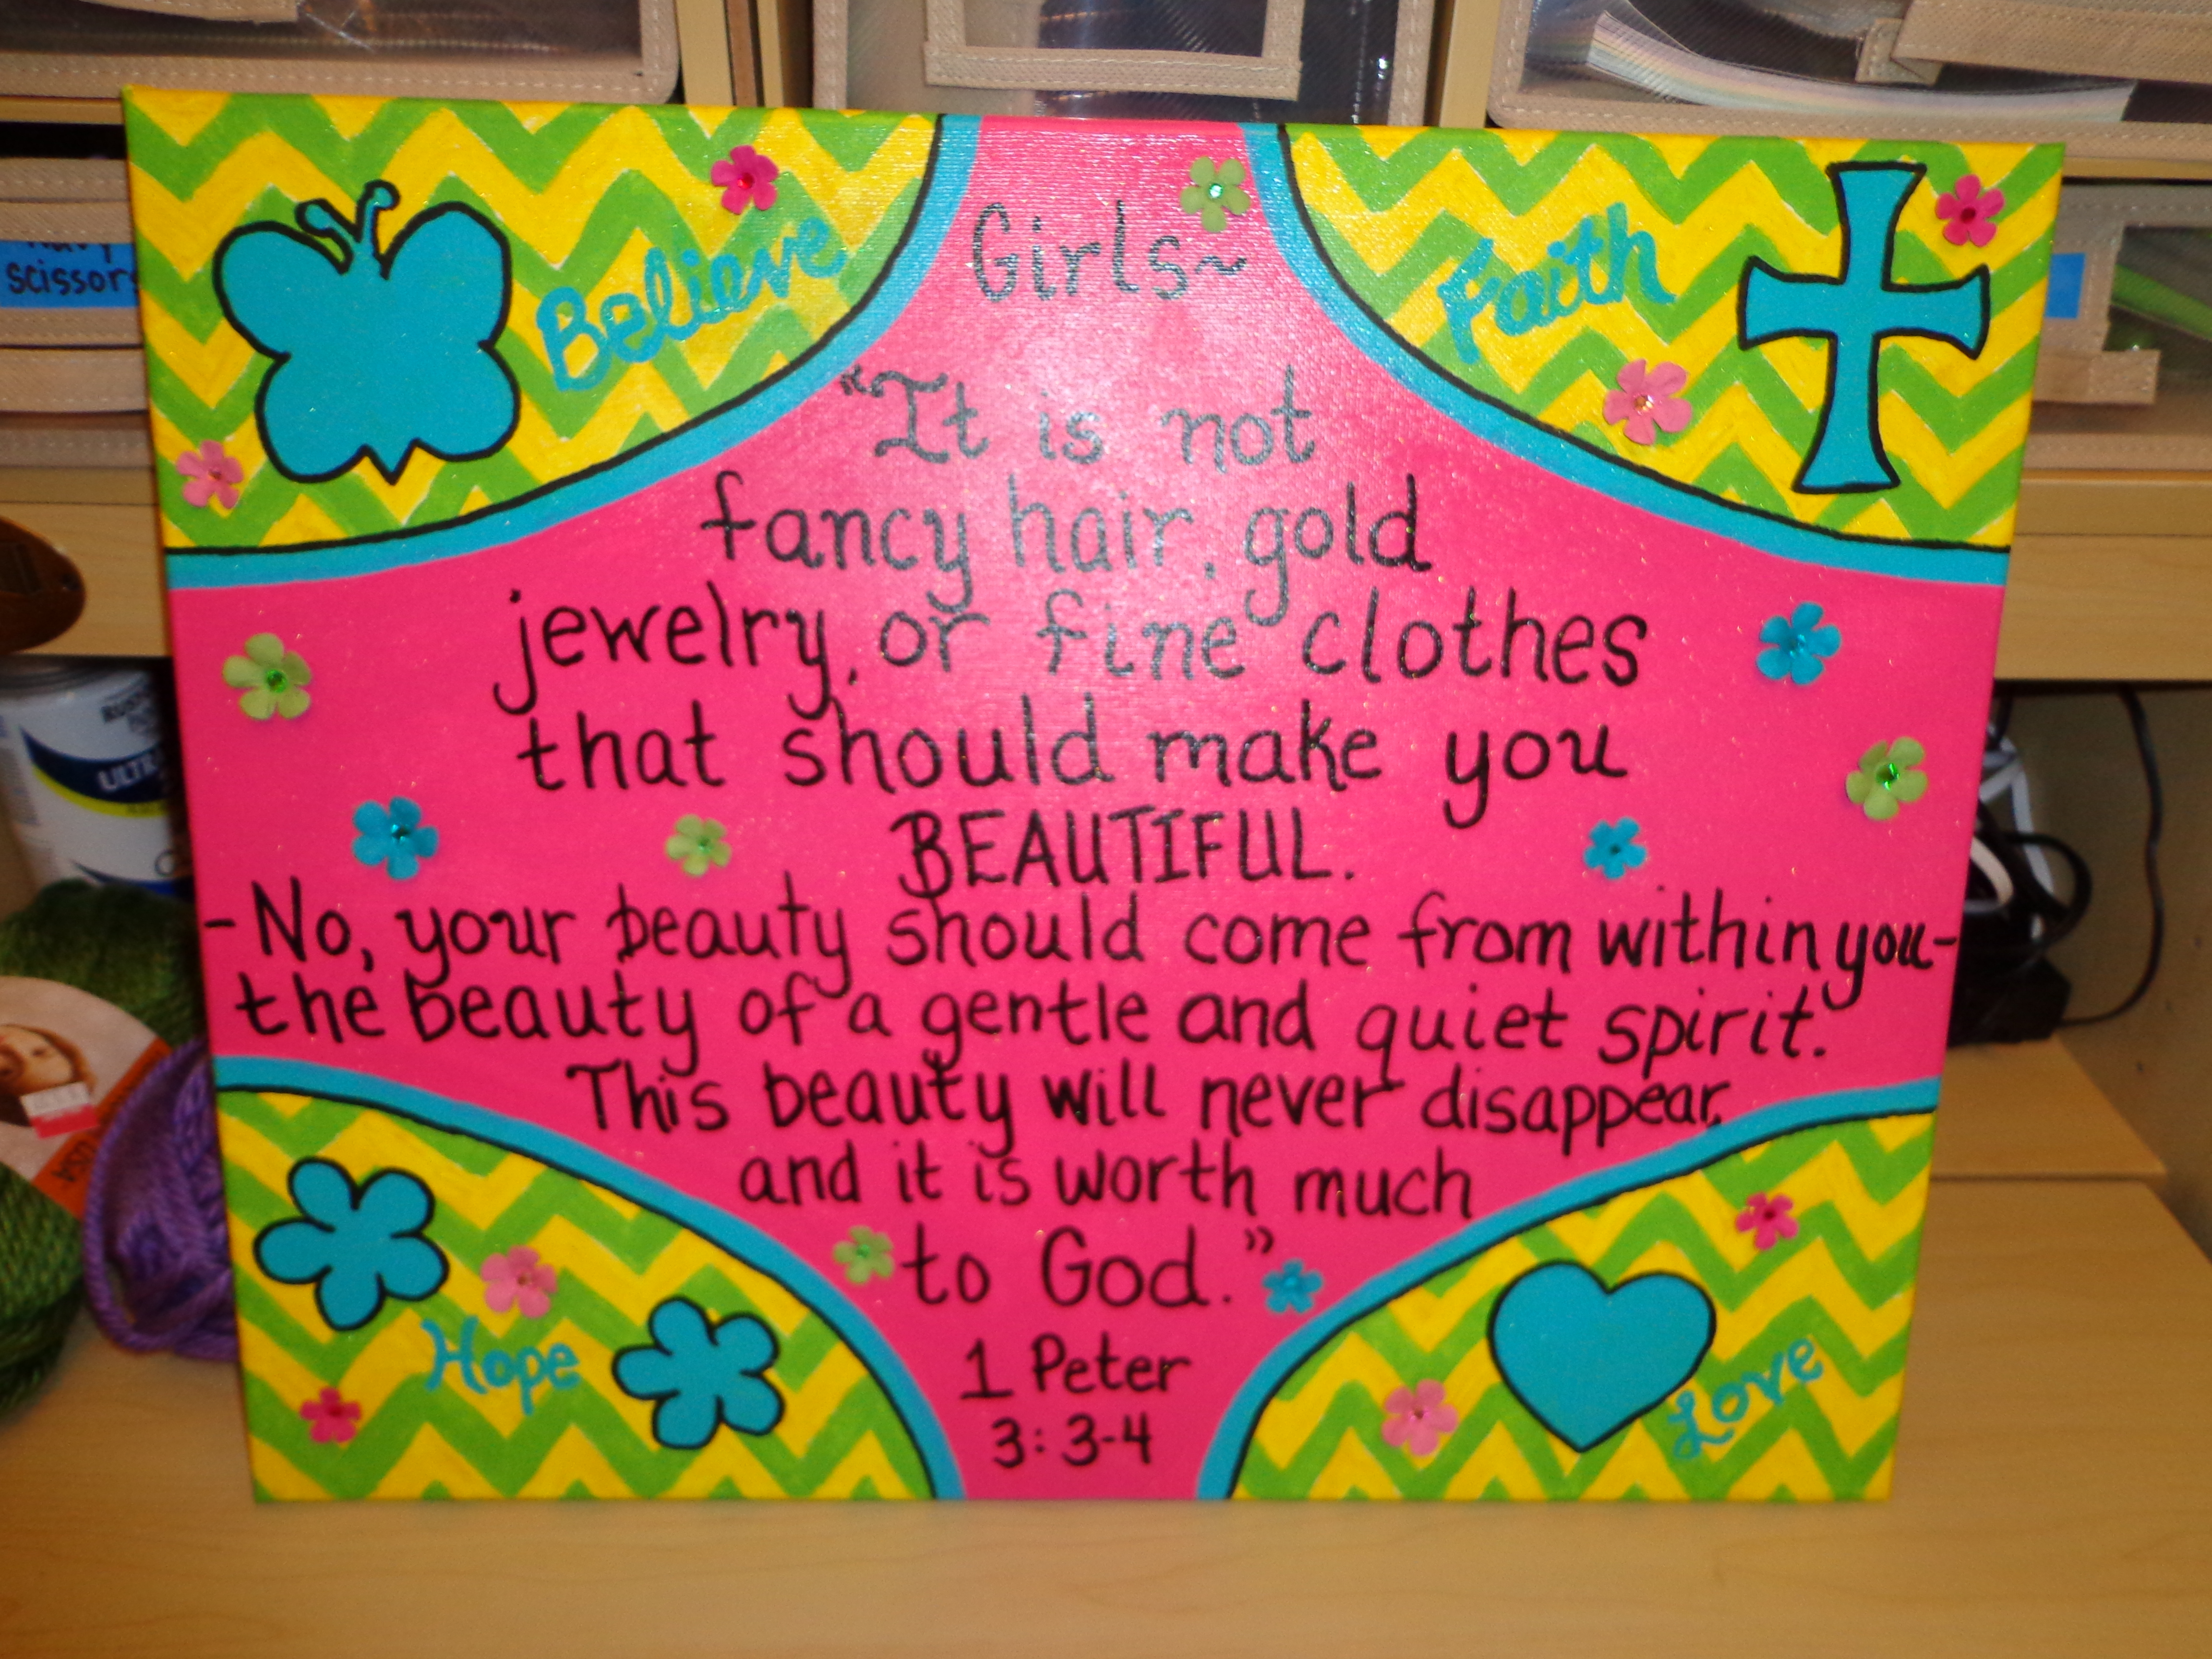 Believe
Faith
Girls~
"It is not
fancy hair, gold
jewelry, or fine clothes
that should make you
BEAUTIFUL.
-No, your beauty should come from within you-
the beauty of a gentle and quiet spirit.
This beauty will never disappear,
and it is worth much
to God."
1 Peter
3:3-4
Hope
Love
scissors
ULTR